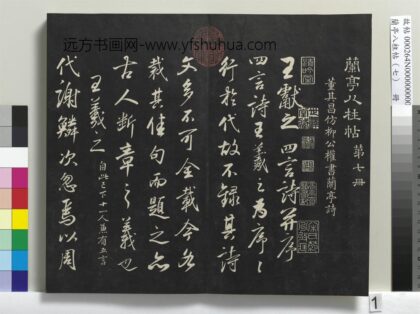 远方书画网-www.yfshuhua.com
故帖 000264N000000000
蘭亭八柱帖(七) 冊
蘭亭八柱帖 第七冊
董其昌仿柳公權書蘭亭詩
王獻之四言詩并序
四言詩王羲之為序序
行於代故不錄其詩
文多不可全載今各
裁其佳句而題之亦
古人斷章之義也
王羲之 自此已下十一人兼有五言
代謝鱗次忽焉以周
1